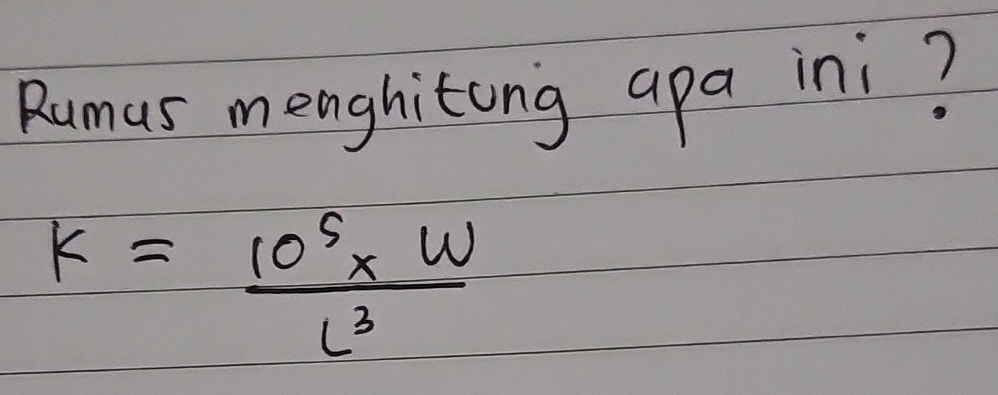 Rumus menghitung apa ini?
K = 10⁵ x W
L³